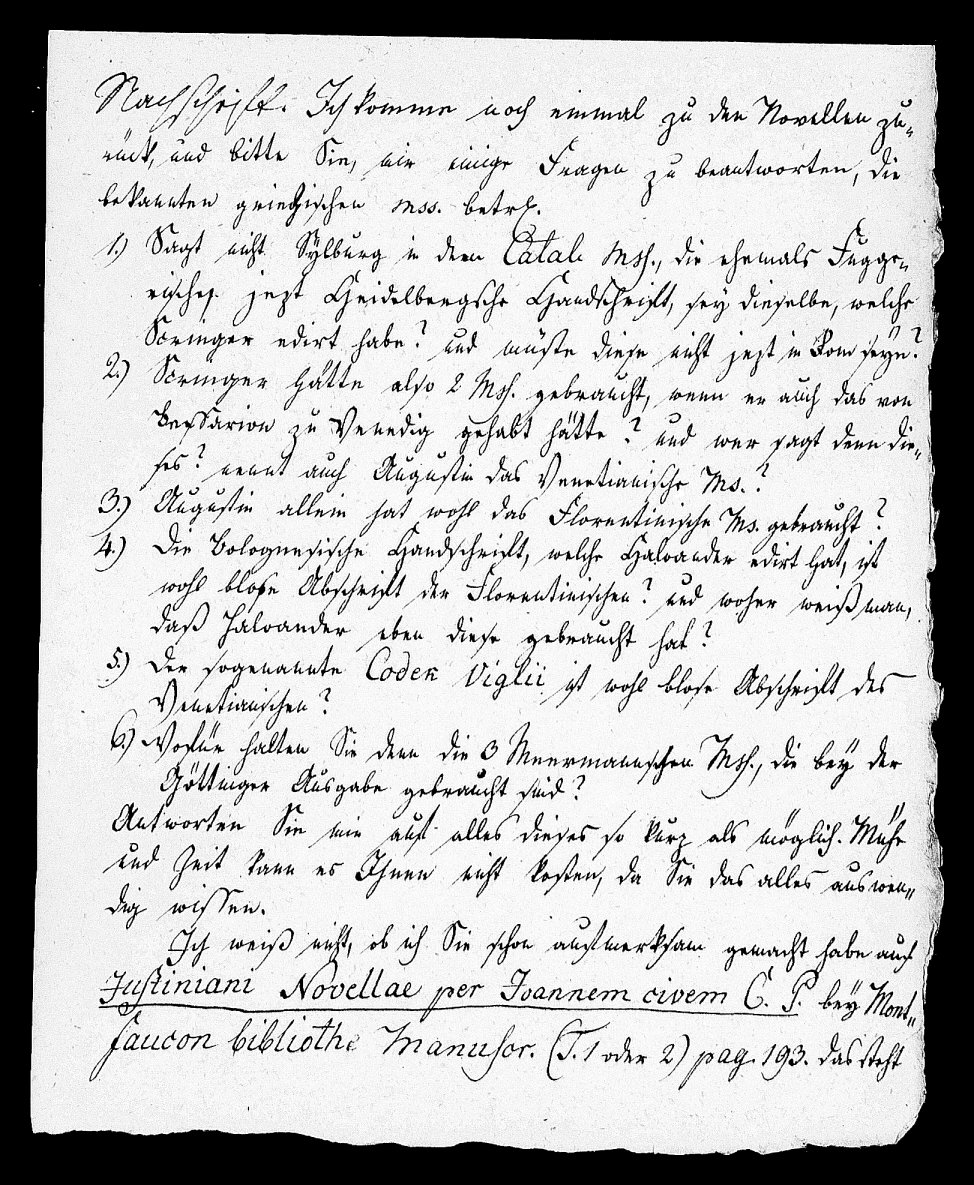 Nachschrift. Ich komme noch einmal zu den Novellen zu-
rück, und bitte Sie, mir einige Fragen zu beantworten, die
bekannten griechischen mss. betref.
1.) Sagt nicht Sylburg in dem Catal. Mss., die ehemals Fugge-
rische, jezt Heidelbergsche Handschrift, sey dieselbe, welche
Scringer edirt habe? und müste diese nicht jezt in Rom seyn?
2.) Scringer hätte also 2 Mss. gebraucht, wenn er auch das von
Bessarion zu Venedig gehabt hätte? und wer sagt denn die-
ses? nennt auch Augustin das Venetianische Ms.?
3.) Augustin allein hat wohl das Florentinische Ms. gebraucht?
4.) Die Bolognesische Handschrift, welche Haloander edirt hat, ist
wohl blose Abschrift der Florentinischen? und woher weiß man,
daß Haloander eben diese gebraucht hat?
5.) Der sogenannte Codex Viglii ist wohl blose Abschrift des
Venetianischen?
6.) Wofür halten Sie denn die 3 Meermannschen Mss., die bey der
Göttinger Ausgabe gebraucht sind?
Antworten Sie mir auf alles dieses so kurz als möglich. Mühe
und Zeit kann es Ihnen nicht kosten, da Sie das alles auswen-
dig wissen.
Ich weiß nicht, ob ich Sie schon aufmerksam gemacht habe auf
Justiniani Novellae per Joannem civem C. P. bey Mont-
faucon bibliothe Manuscr. (T. 1 oder 2) pag. 193. das steht